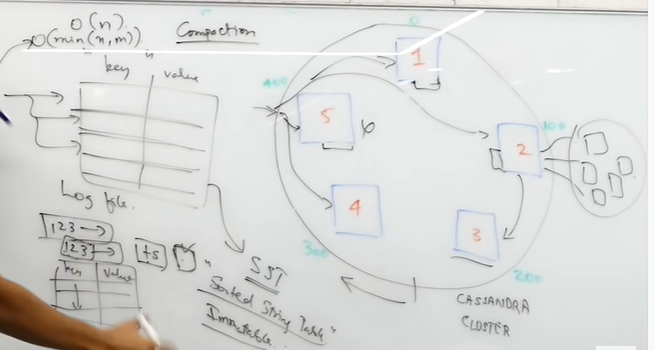 O(n).
O(min(n,m))
Compaction
"key" value
Log file.
123 →
123 → ts
key value
SST
"Sorted String Table"
Immutable.
0
1
400
5
6
100
2
4
3
300
200
CASSANDRA
CLUSTER